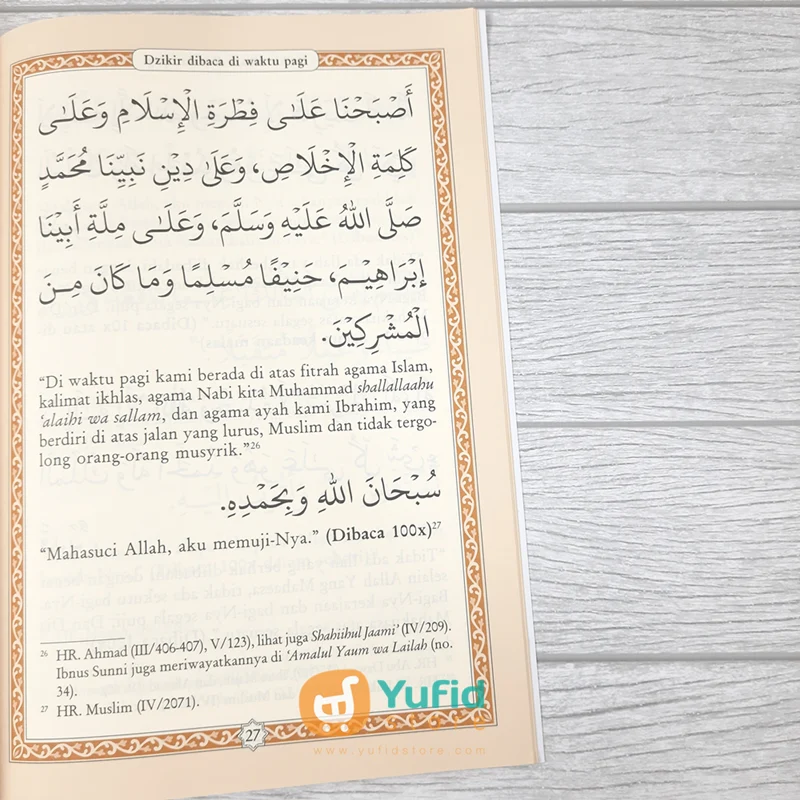 Dzikir dibaca di waktu pagi
أَصْبَحْنَا عَلَى فِطْرَةِ الْإِسْلَامِ وَعَلَى
كَلِمَةِ الْإِخْلَاصِ، وَعَلَى دِيْنِ نَبِيِّنَا مُحَمَّدٍ
صَلَّى اللهُ عَلَيْهِ وَسَلَّمَ، وَعَلَى مِلَّةِ أَبِيْنَا
إِبْرَاهِيْمَ، حَنِيْفًا مُسْلِمًا وَمَا كَانَ مِنَ
الْمُشْرِكِيْنَ.
“Di waktu pagi kami berada di atas fitrah agama Islam,
kalimat ikhlas, agama Nabi kita Muhammad shallallaahu
‘alaihi wa sallam, dan agama ayah kami Ibrahim, yang
berdiri di atas jalan yang lurus, Muslim dan tidak tergo-
long orang-orang musyrik.”26
سُبْحَانَ اللهِ وَبِحَمْدِهِ.
“Mahasuci Allah, aku memuji-Nya.” (Dibaca 100x)27
26 HR. Ahmad (III/406-407), V/123), lihat juga Shahiihul Jaami’ (IV/209).
Ibnus Sunni juga meriwayatkannya di ‘Amalul Yaum wa Lailah (no.
34).
27 HR. Muslim (IV/2071).
Yufid
www.yufidstore.com
27